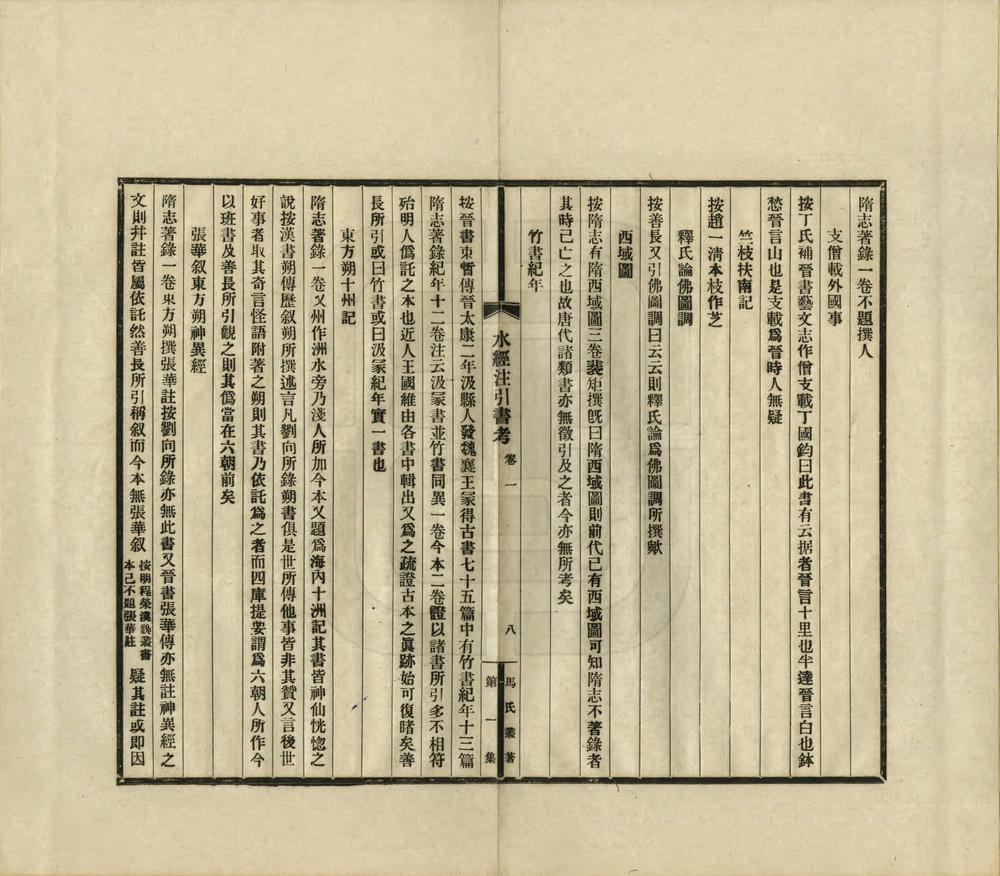 隋志著錄一卷不題撰人
支僧載外國事
按丁氏補晉書藝文志作僧支載丁國鈞曰此書有云据者晉言十里也半達晉言白也鉢
愁晉言山也是支載爲晉時人無疑
竺枝扶南記
按趙一淸本枝作芝
釋氏論佛圖調
按善長又引佛圖調曰云云則釋氏論爲佛圖調所撰歟
西域圖
按隋志有隋西域圖三卷裴矩撰旣曰隋西域圖則前代已有西域圖可知隋志不著錄者
其時已亡之也故唐代諸類書亦無徵引及之者今亦無所考矣
竹書紀年
水經注引書考 卷一 八 馬氏叢著 第一集
按晉書束晳傳晉太康二年汲縣人發魏襄王冢得古書七十五篇中有竹書紀年十三篇
隋志著錄紀年十二卷注云汲冢書並竹書同異一卷今本二卷證以諸書所引多不相符
殆明人僞託之本也近人王國維由各書中輯出又爲之疏證古本之眞跡始可復睹矣善
長所引或曰竹書或曰汲冢紀年實一書也
東方朔十州記
隋志著錄一卷又州作洲水旁乃淺人所加今本又題爲海內十洲記其書皆神仙恍惚之
說按漢書朔傳歷叙朔所撰述言凡劉向所錄朔書俱是世所傳他事皆非其贊又言後世
好事者取其奇言怪語附著之朔則其書乃依託爲之者而四庫提要謂爲六朝人所作今
以班書及善長所引觀之則其僞當在六朝前矣
張華叙東方朔神異經
隋志著錄一卷東方朔撰張華註按劉向所錄亦無此書又晉書張華傳亦無註神異經之
文則幷註皆屬依託然善長所引稱叙而今本無張華叙 按明程榮漢魏叢書本已不題張華註 疑其註或即因